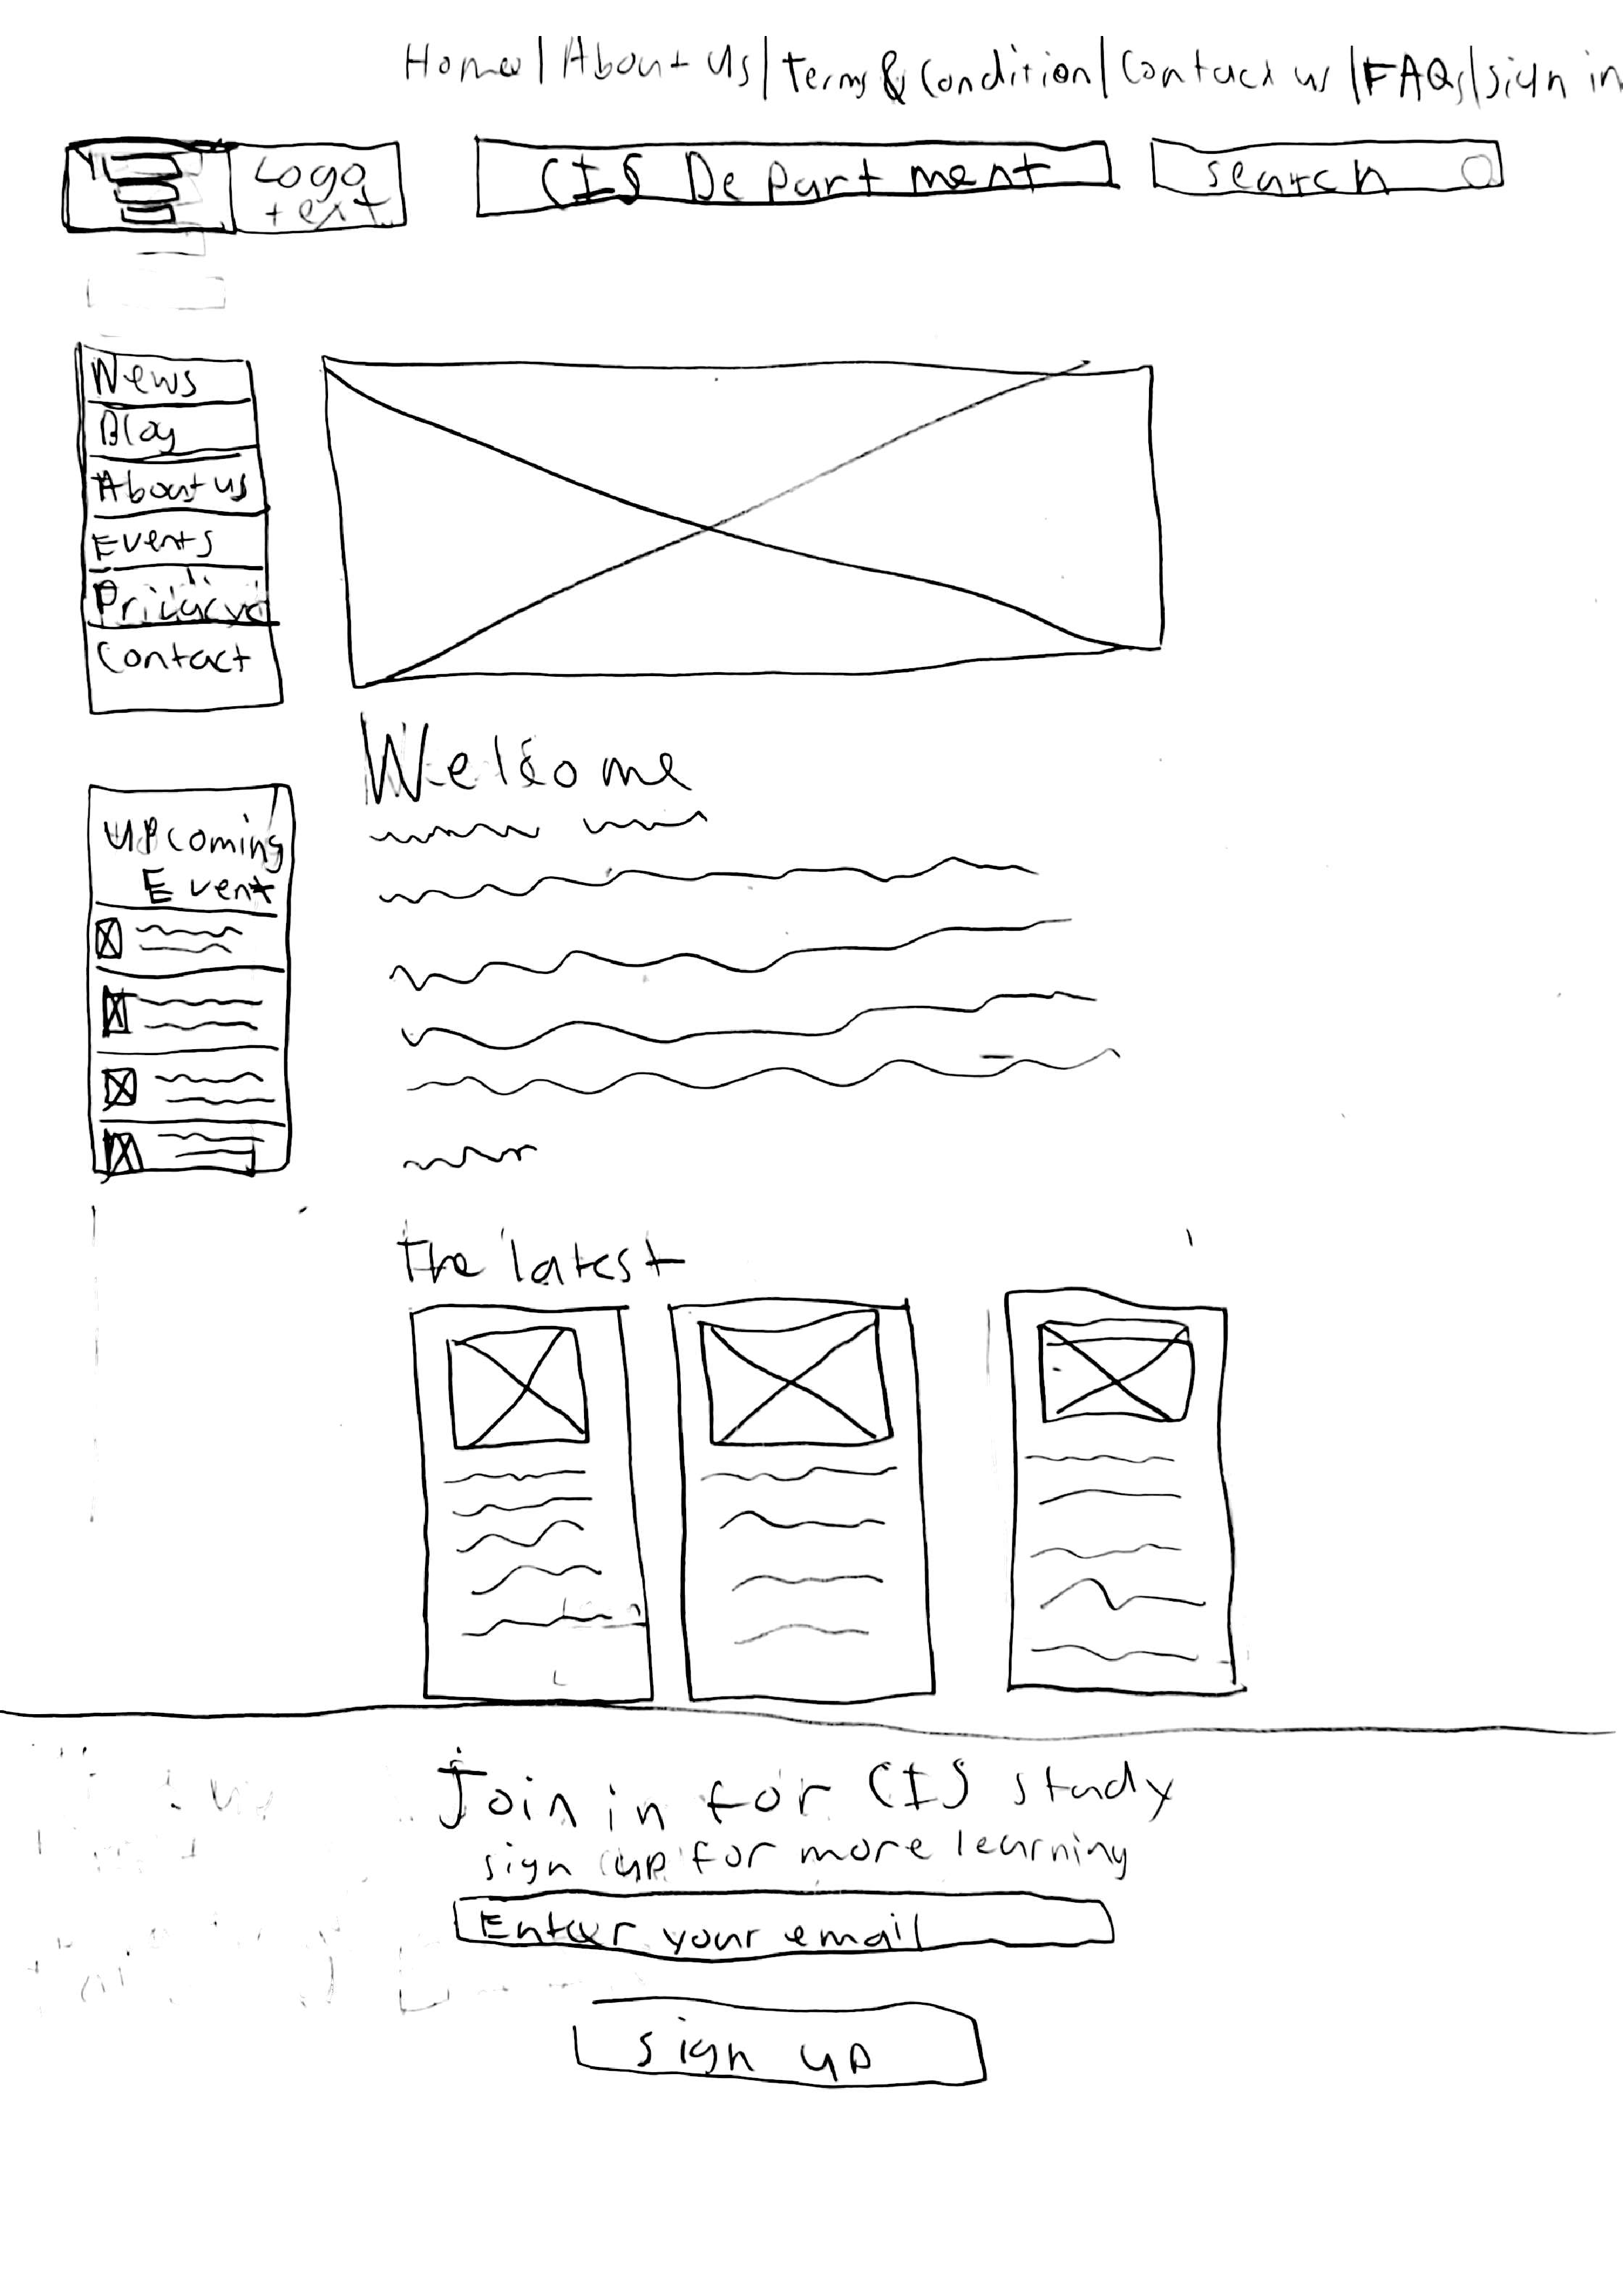 Home | About us | Terms & Condition | Contact us | FAQs | sign in
Logo
text
CIS Department
search
News
Blog
About us
Events
Contact
Welcome
Upcoming
Event
The latest
Join in for CIS study
sign up for more learning
Enter your email
sign up